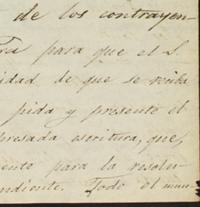 de los contrayen-
para que el S.
idad de que se
pida y presente el
presada escritura, que,
ento para la resolu-
ndiente. Todo el mun-